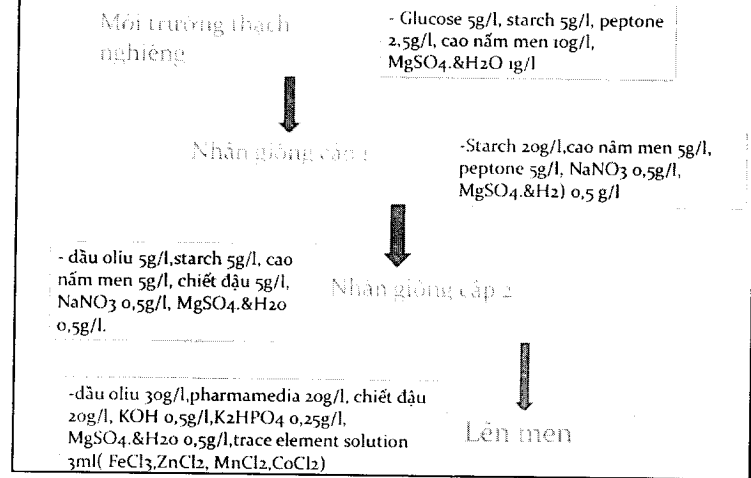 Môi trường thạch
nghiêng
- Glucose 5g/l, starch 5g/l, peptone
2,5g/l, cao nấm men 10g/l,
MgSO4.&H2O 1g/l
Nhân giống cấp 1
-Starch 20g/l,cao nâm men 5g/l,
peptone 5g/l, NaNO3 0,5g/l,
MgSO4.&H2) 0,5 g/l
- dầu oliu 5g/l,starch 5g/l, cao
nấm men 5g/l, chiết đậu 5g/l,
NaNO3 0,5g/l, MgSO4.&H20
0,5g/l.
Nhân giống cấp 2
-dầu oliu 30g/l,pharmamedia 20g/l, chiết đậu
20g/l, KOH 0,5g/l,K2HPO4 0,25g/l,
MgSO4.&H20 0,5g/l,trace element solution
3ml( FeCl3,ZnCl2, MnCl2,CoCl2)
Lên men